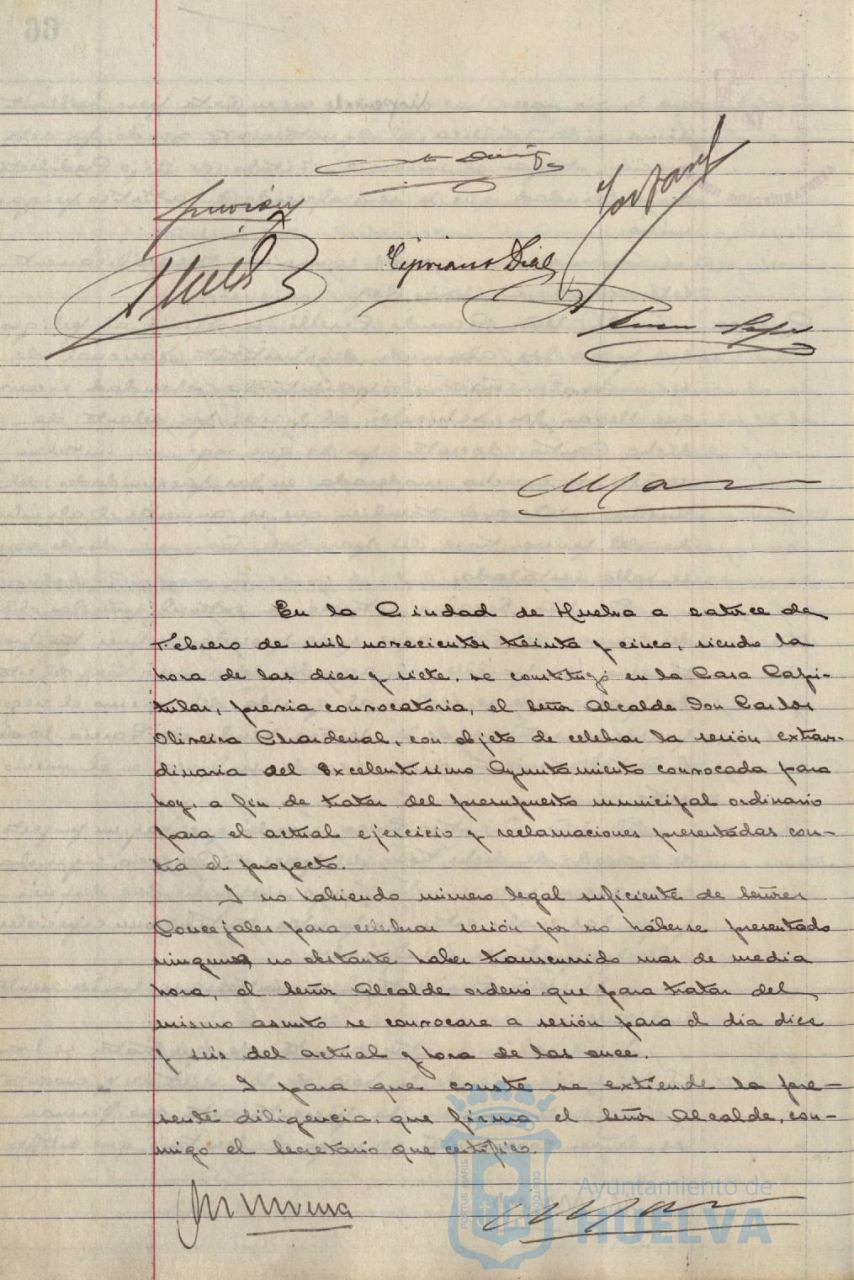 Cipriano Dial
En la Ciudad de Huelva a catorce de
Febrero de mil novecientos treinta y cinco, siendo la
hora de las diez y siete, se constituyó en la Casa Capi-
tular, previa convocatoria, el Señor Alcalde Don Carlos
Oliveira Chardenal, con objeto de celebrar la sesión extraor-
dinaria del Excelentísimo Ayuntamiento convocada para
hoy, a fin de tratar del presupuesto municipal ordinario
para el actual ejercicio y reclamaciones presentadas con-
tra el proyecto.
Y no habiendo número legal suficiente de Señores
Concejales para celebrar sesión por no háberse presentado
ninguno no obstante haber transcurrido mas de media
hora, el Señor Alcalde ordenó que para tratar del
mismo asunto se convocase a sesión para el día diez
y seis del actual y hora de las once.
Y para que conste se extiende la pre-
sente diligencia, que firma el Señor Alcalde, con-
migo el Secretario que certifico.
Ayuntamiento de
HUELVA